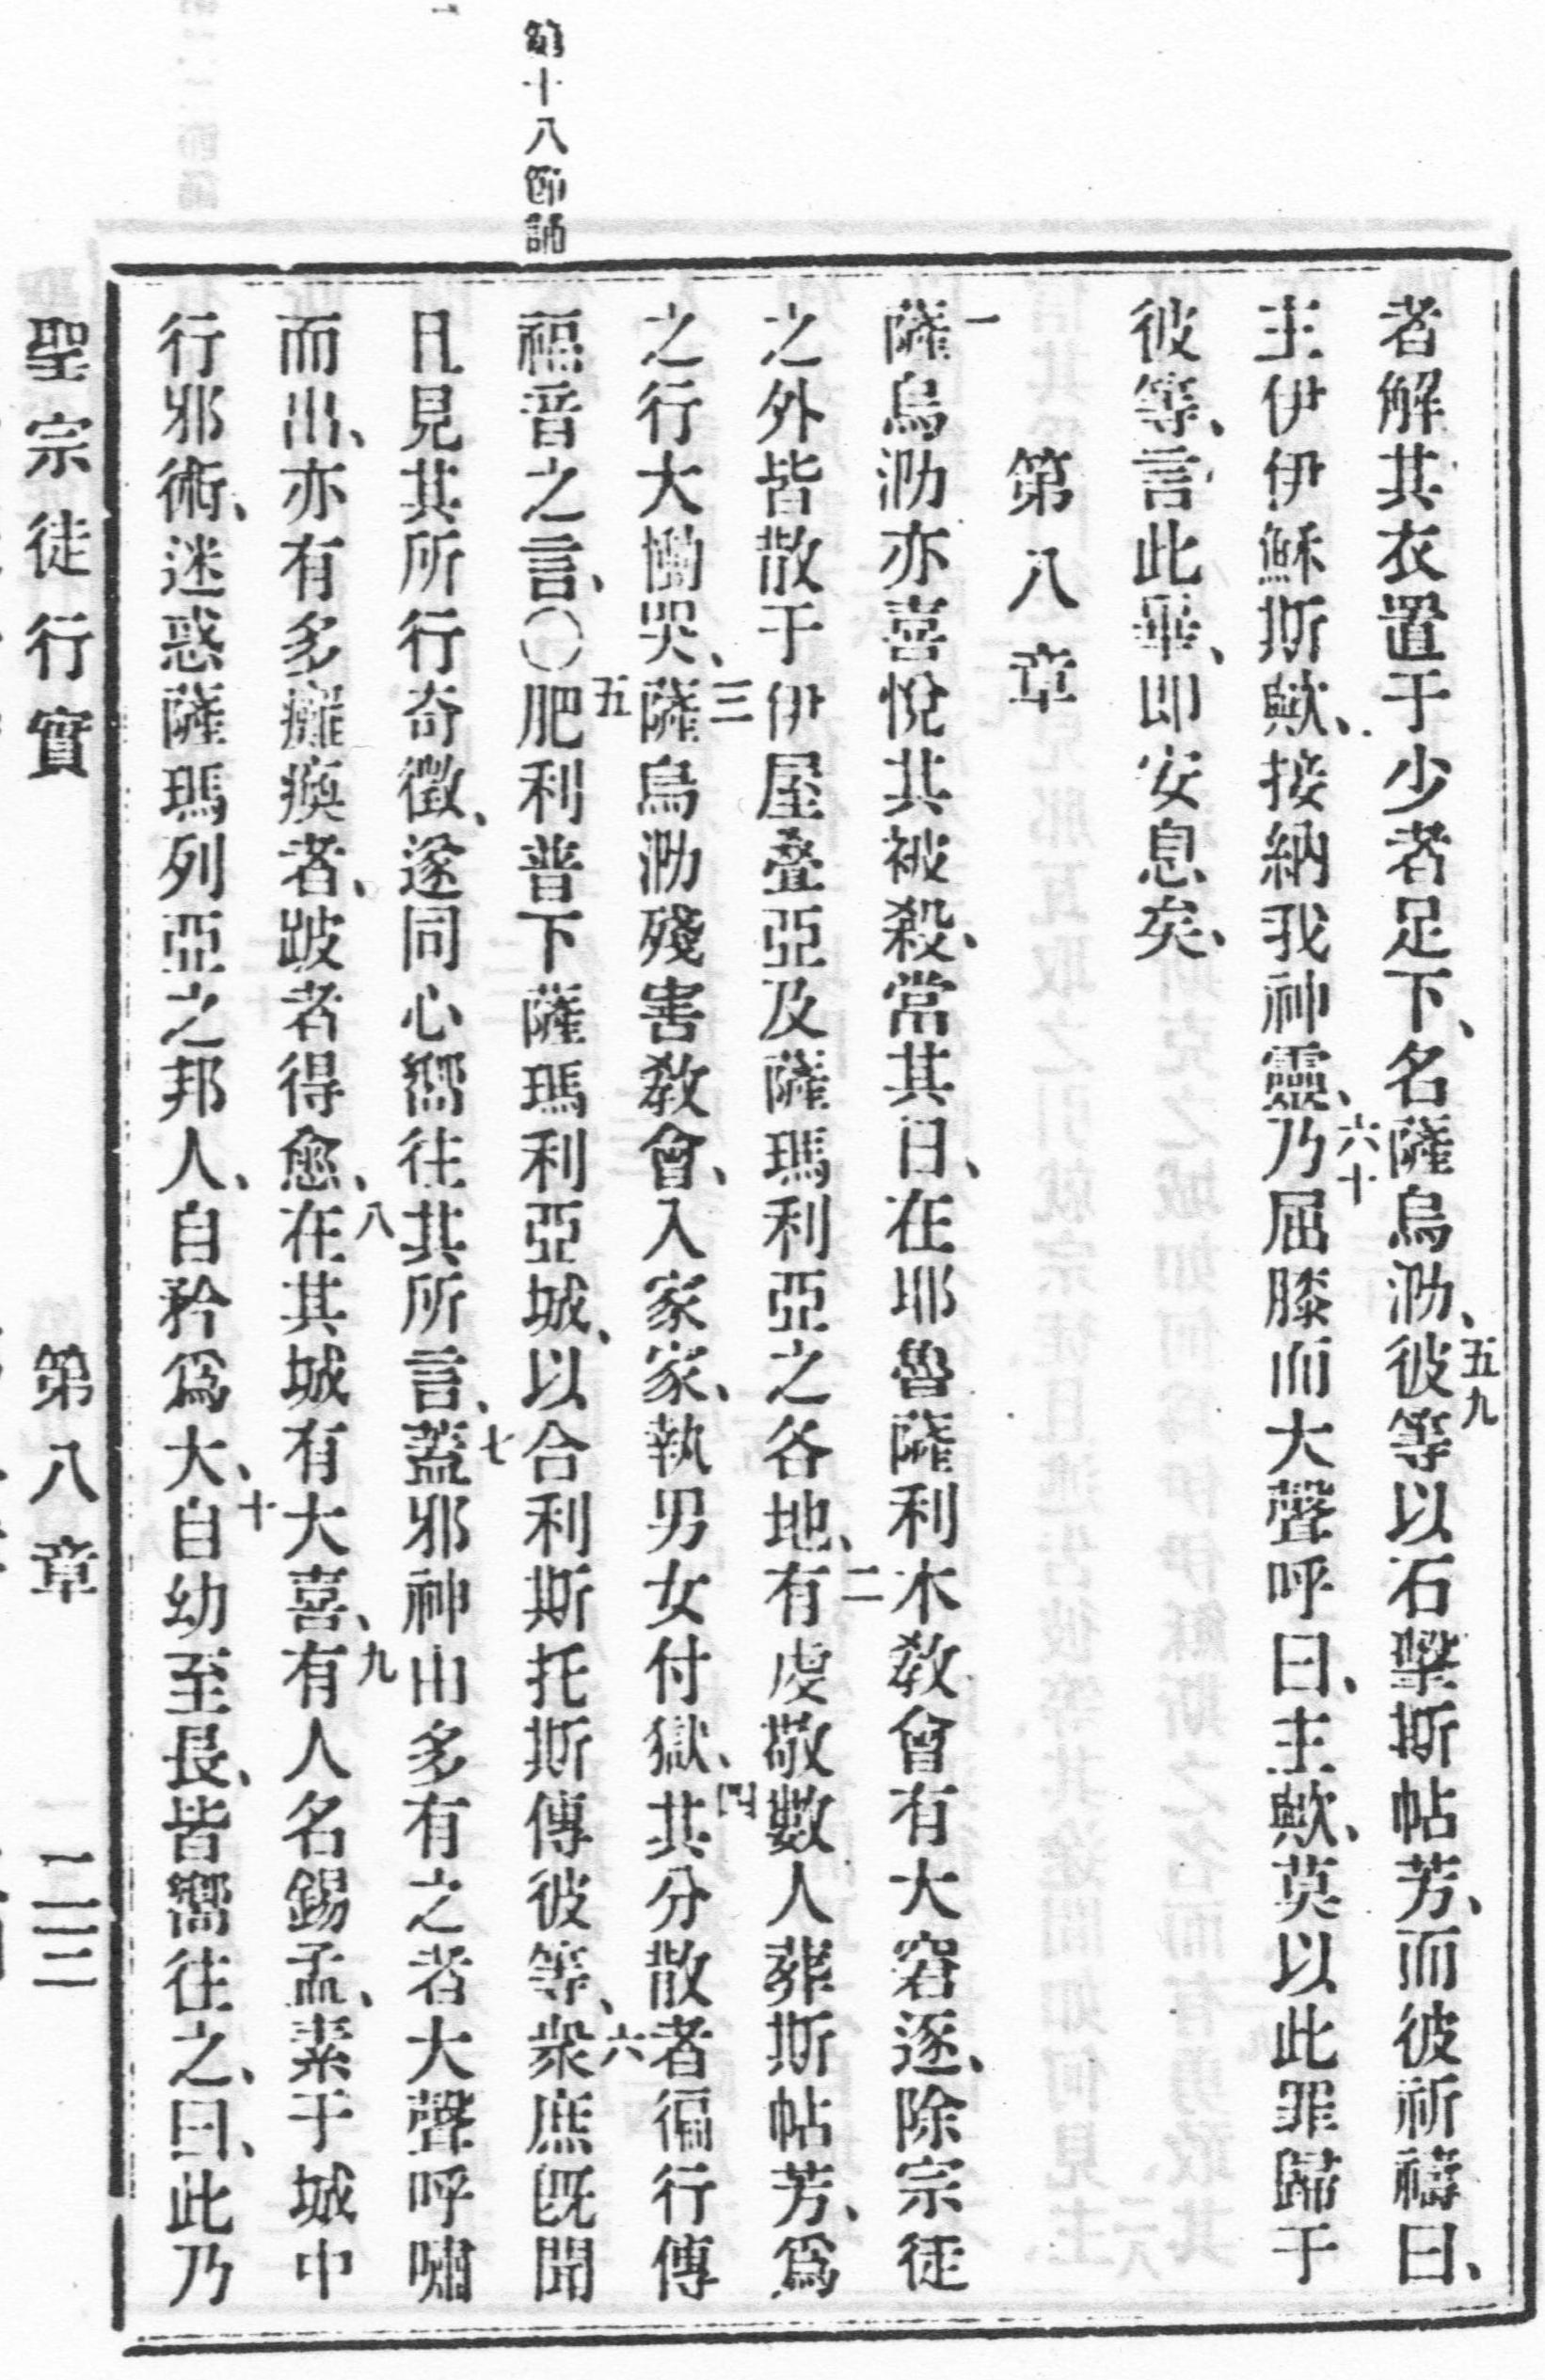 者解其衣置于少者足下、名薩烏泐、五九彼等以石擊斯帖芳、而彼祈禱曰、
主伊伊穌斯歟、接納我神靈、六十乃屈膝而大聲呼曰、主歟、莫以此罪歸于
彼等、言此畢、即安息矣、
第八章
一薩烏泐亦喜悅其被殺、當其日、在耶魯薩利木教會有大窘逐、除宗徒
之外皆散于伊屋疊亞及薩瑪利亞之各地、二有虔敬數人葬斯帖芳、爲
之行大慟哭、三薩烏泐殘害教會、入家家、執男女付獄、四其分散者徧行傳
福音之言、〇五肥利普下薩瑪利亞城、以合利斯托斯傳彼等、六衆庶既聞
且見其所行奇徵、遂同心嚮往其所言、七蓋邪神由多有之者大聲呼嘯
而出、亦有多癱瘓者、跛者得愈、八在其城有大喜、九有人名錫孟、素于城中
行邪術、迷惑薩瑪列亞之邦人、自矜爲大、十自幼至長、皆嚮往之、曰、此乃
聖宗徒行實 第八章 二三
第十八節誦